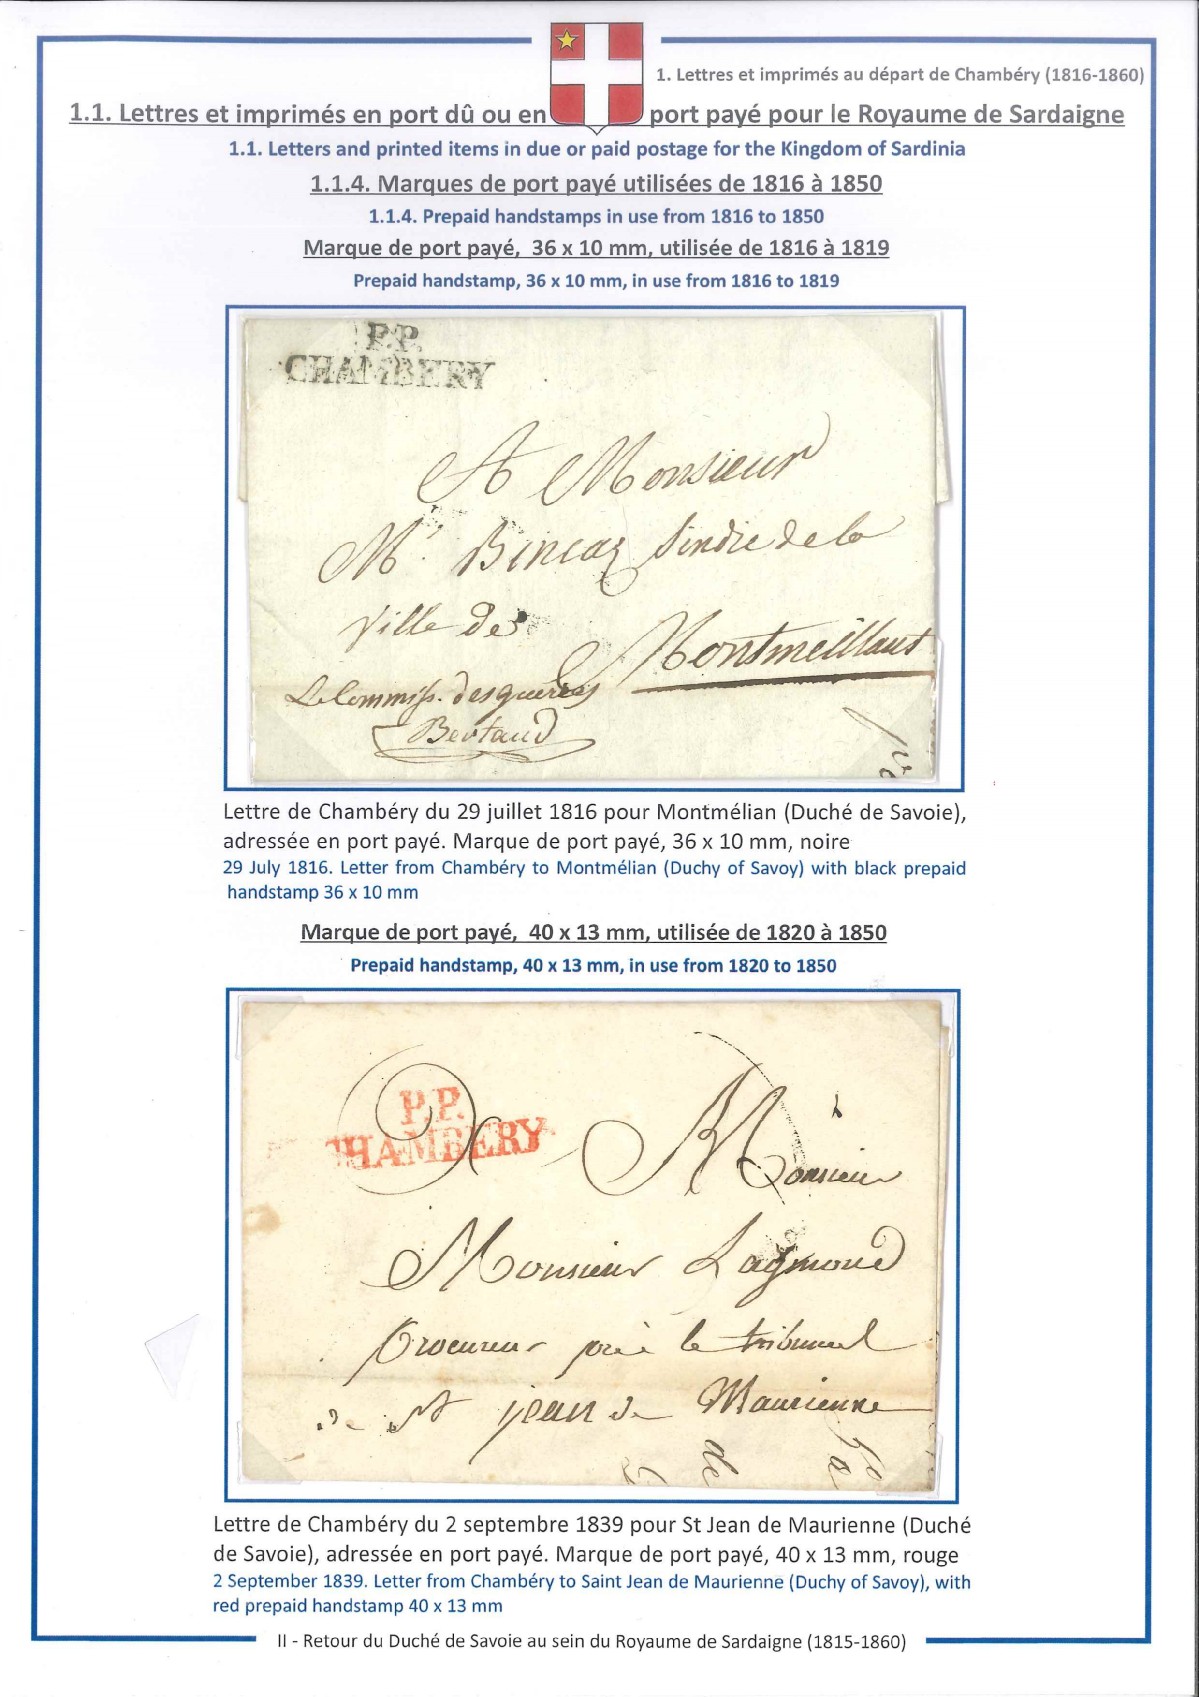 1. Lettres et imprimés au départ de Chambéry (1816-1860)
1.1. Lettres et imprimés en port dû ou en port payé pour le Royaume de Sardaigne
1.1. Letters and printed items in due or paid postage for the Kingdom of Sardinia
1.1.4. Marques de port payé utilisées de 1816 à 1850
1.1.4. Prepaid handstamps in use from 1816 to 1850
Marque de port payé, 36 x 10 mm, utilisée de 1816 à 1819
Prepaid handstamp, 36 x 10 mm, in use from 1816 to 1819
P.P.
CHAMBERY
A Monsieur
Mr Sindic de la
ville de
Montmeillant
Le Commiss. des guerres
Bertaud
Lettre de Chambéry du 29 juillet 1816 pour Montmélian (Duché de Savoie),
adressée en port payé. Marque de port payé, 36 x 10 mm, noire
29 July 1816. Letter from Chambéry to Montmélian (Duchy of Savoy) with black prepaid
handstamp 36 x 10 mm
Marque de port payé, 40 x 13 mm, utilisée de 1820 à 1850
Prepaid handstamp, 40 x 13 mm, in use from 1820 to 1850
P.P.
CHAMBERY
A Monsieur
Monsieur
procureur près le tribunal
de St jean de Maurienne
Lettre de Chambéry du 2 septembre 1839 pour St Jean de Maurienne (Duché
de Savoie), adressée en port payé. Marque de port payé, 40 x 13 mm, rouge
2 September 1839. Letter from Chambéry to Saint Jean de Maurienne (Duchy of Savoy), with
red prepaid handstamp 40 x 13 mm
II - Retour du Duché de Savoie au sein du Royaume de Sardaigne (1815-1860)